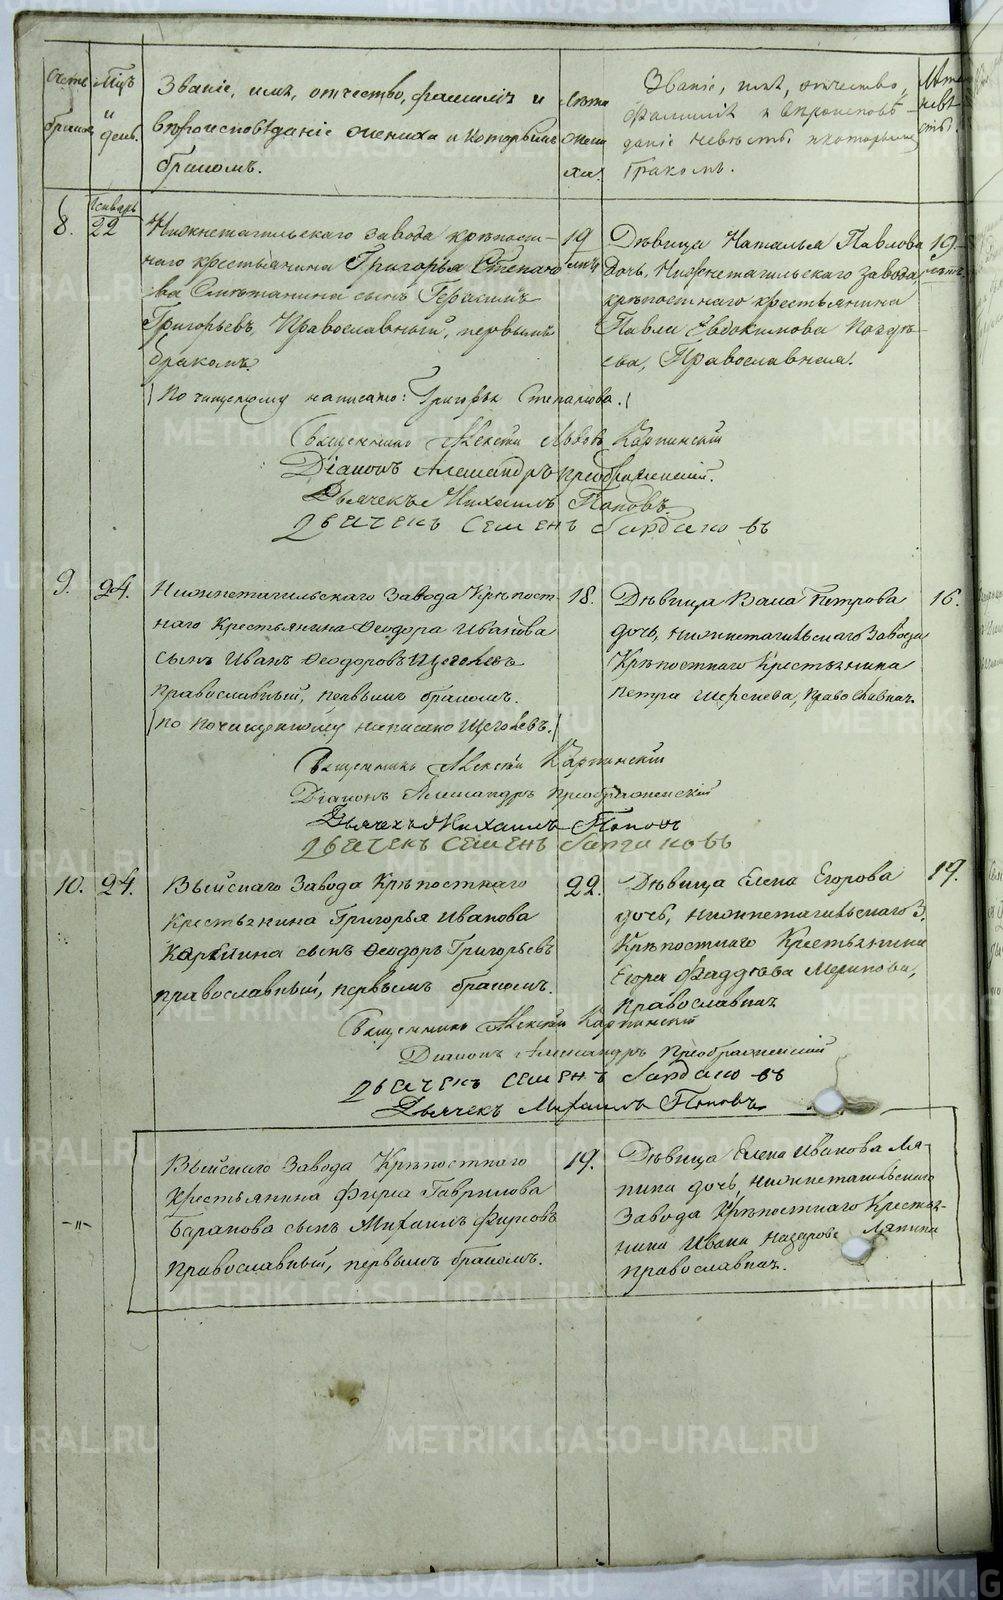 Счетъ браковъ
Мѣсяцъ и день.
Званіе, имя, отчество, фамилія и
вѣроисповѣданіе жениха и которымъ
бракомъ.
лѣта
жени
ха.
Званіе, имя, отчество,
фамилія и вѣроисповѣ-
даніе невѣсты и которымъ
бракомъ.
Лѣта
невѣ
сты.
8.
Январь
22
Нижнетагильскаго завода крѣпост-
наго крестьянина Григорья Степано
ва Смѣтанина сынъ Герасимъ
Григорьевъ, Православный, первымъ
бракомъ.
19
лѣтъ
Дѣвица Наталья Павлова
дочь, Нижнетагильскаго завода,
крѣпостнаго крестьянина
Павла Евдокимова
ева, Православная.
19
лѣтъ
(По чищеному написано: Григорья Степанова.)
Священникъ Алексѣй Львовъ Карпинскій
Діаконъ Александръ Преображенскій.
Дьячекъ Михаилъ Поповъ.
Дьячекъ Семенъ
9.
24.
Нижнетагильскаго Завода Крѣпост-
наго Крестьянина Ѳеодора Иванова
сынъ Иванъ Ѳеодоровъ Щеголевъ
православный, первымъ бракомъ.
(по почищенному написано Щеголевъ.)
18.
Дѣвица Петрова
дочь, нижнетагильскаго Завода
Крѣпостнаго Крестьянина
Петра православная
16.
Священникъ Алексѣй Карпинскій
Діаконъ Александръ Преображенскій
Дьячекъ Михаилъ Поповъ
Дьячекъ Семенъ
10.
24.
Выйскаго Завода Крѣпостнаго
Крестьянина Григорья Иванова
сынъ Ѳеодоръ Григорьевъ
православный, первымъ бракомъ.
22.
Дѣвица Елена Егорова
дочь, нижнетагильскаго З.
Крѣпостнаго Крестьянина
Егора Фаддѣева Меринова,
православная
19.
Священникъ Алексѣй Карпинскій
Діаконъ Александръ Преображенскій
Дьячекъ Семенъ
Дьячекъ Михаилъ Поповъ
-"-
Выйскаго Завода Крѣпостнаго
Крестьянина Фирса Гаврилова
Баранова сынъ Михаилъ Фирсовъ
православный, первымъ бракомъ.
19.
Дѣвица Елена Иванова Ля-
пина дочь, нижнетагильскаго
Завода Крѣпостнаго Крестья-
нина Ивана Назарова Ляпина
православная.
METRIKI.GASO-URAL.RU